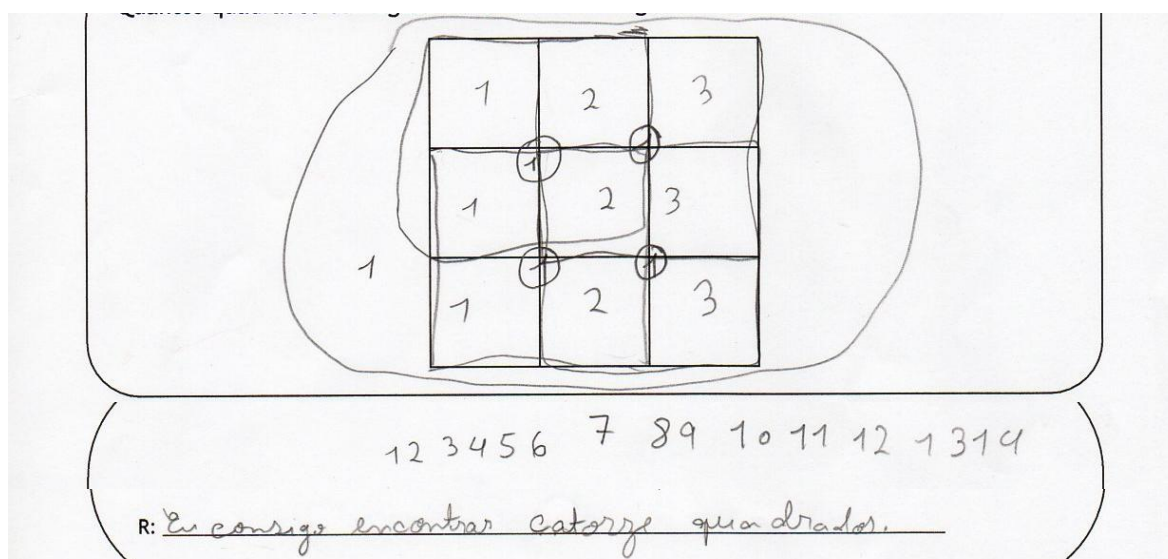 1 2 3
1 1
1 2 3
1
1 1
1 2 3
12 3 4 5 6 7 8 9 10 11 12 13 14
R: Eu consigo encontrar catorze quadrados.